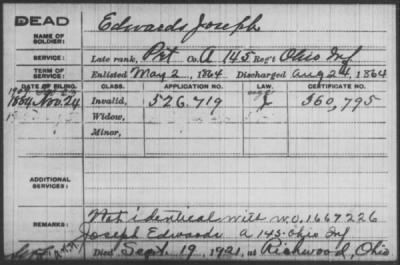 DEAD
Edwards Joseph
NAME OF SOLDIER:
SERVICE: Late rank, Pvt Co. A 145 Reg't Ohio Inf
TERM OF SERVICE: Enlisted May 2, 1864 Discharged Aug 24, 1864
DATE OF FILING. CLASS. APPLICATION NO. LAW. CERTIFICATE NO.
1884 Nov. 24 Invalid, 526.719 J 360,795
Widow,
Minor,
ADDITIONAL SERVICES:
Not identical with W.O. 1667226
REMARKS: Joseph Edwards A 145 Ohio Inf
Died Sept 19, 1921, at Richwood, Ohio